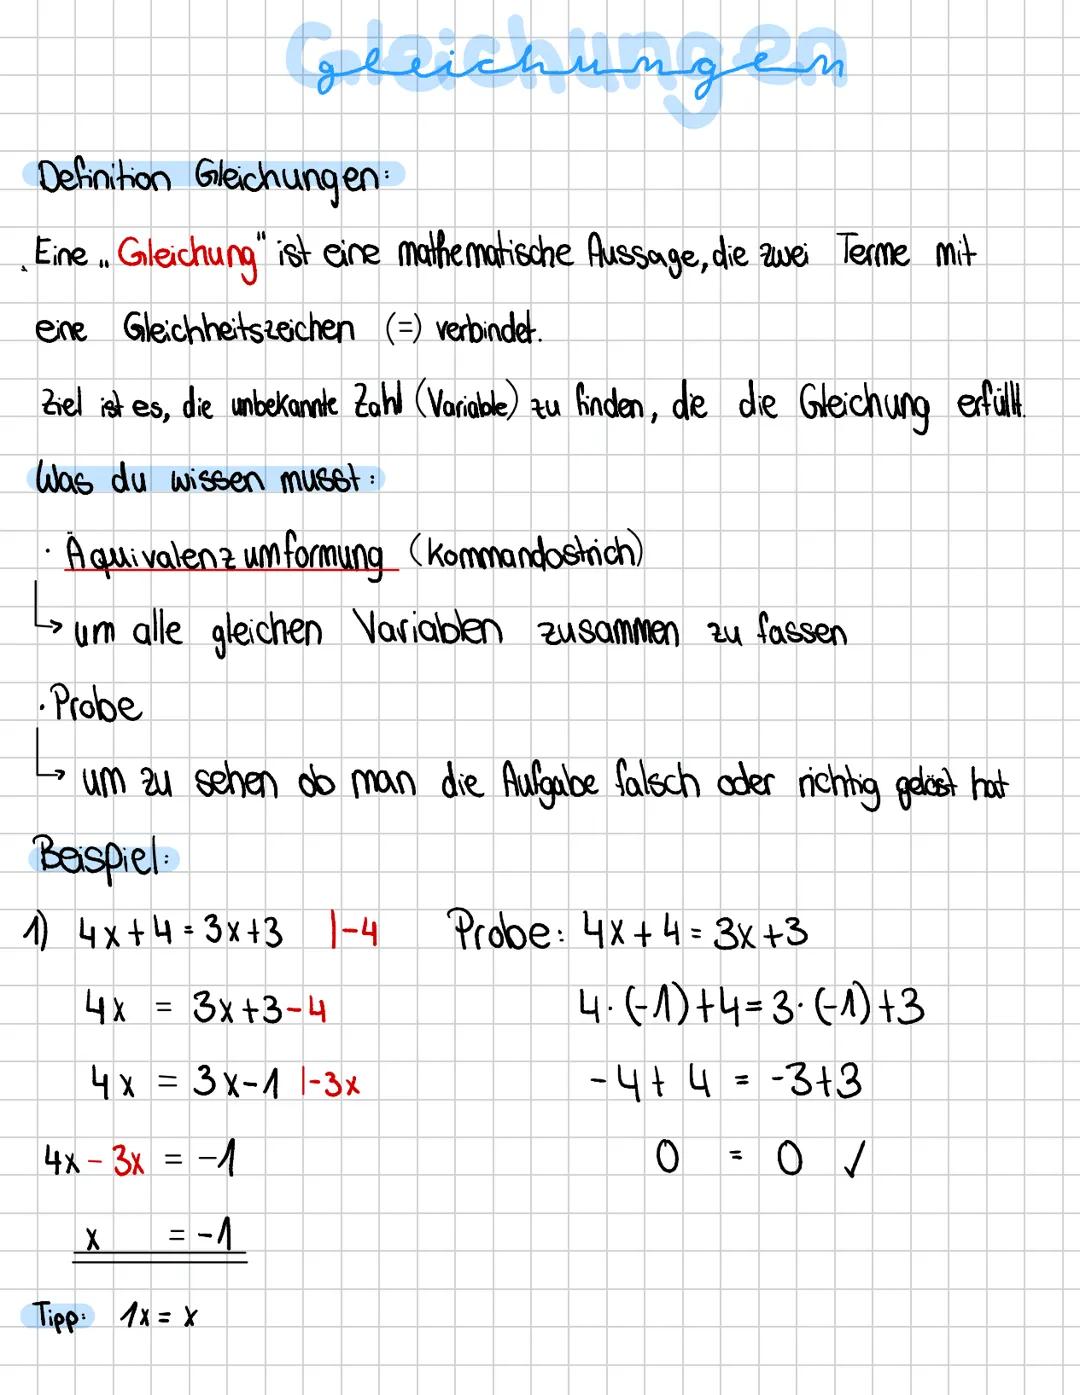 Gleichungen
gleichungen
Definition Gleichungen:
Eine „Gleichung" ist eine mathematische Aussage, die zwei Terme mit
eine Gleichheitszeichen (=) verbindet.
Ziel ist es, die unbekannte Zahl (Variable) zu finden, die die Gleichung erfüllt.
Was du wissen musst:
· Äquivalenzumformung (Kommandostrich)
↳ um alle gleichen Variablen zusammen zu fassen
· Probe
↳ um zu sehen ob man die Aufgabe falsch oder richtig gelöst hat
Beispiel:
1) 4x+4=3x+3 |-4 Probe: 4x+4=3x+3
4x = 3x+3-4 4·(-1)+4=3·(-1)+3
4x = 3x-1 |-3x -4+4 = -3+3
4x-3x = -1 0 = 0 ✓
x = -1
Tipp: 1x = x